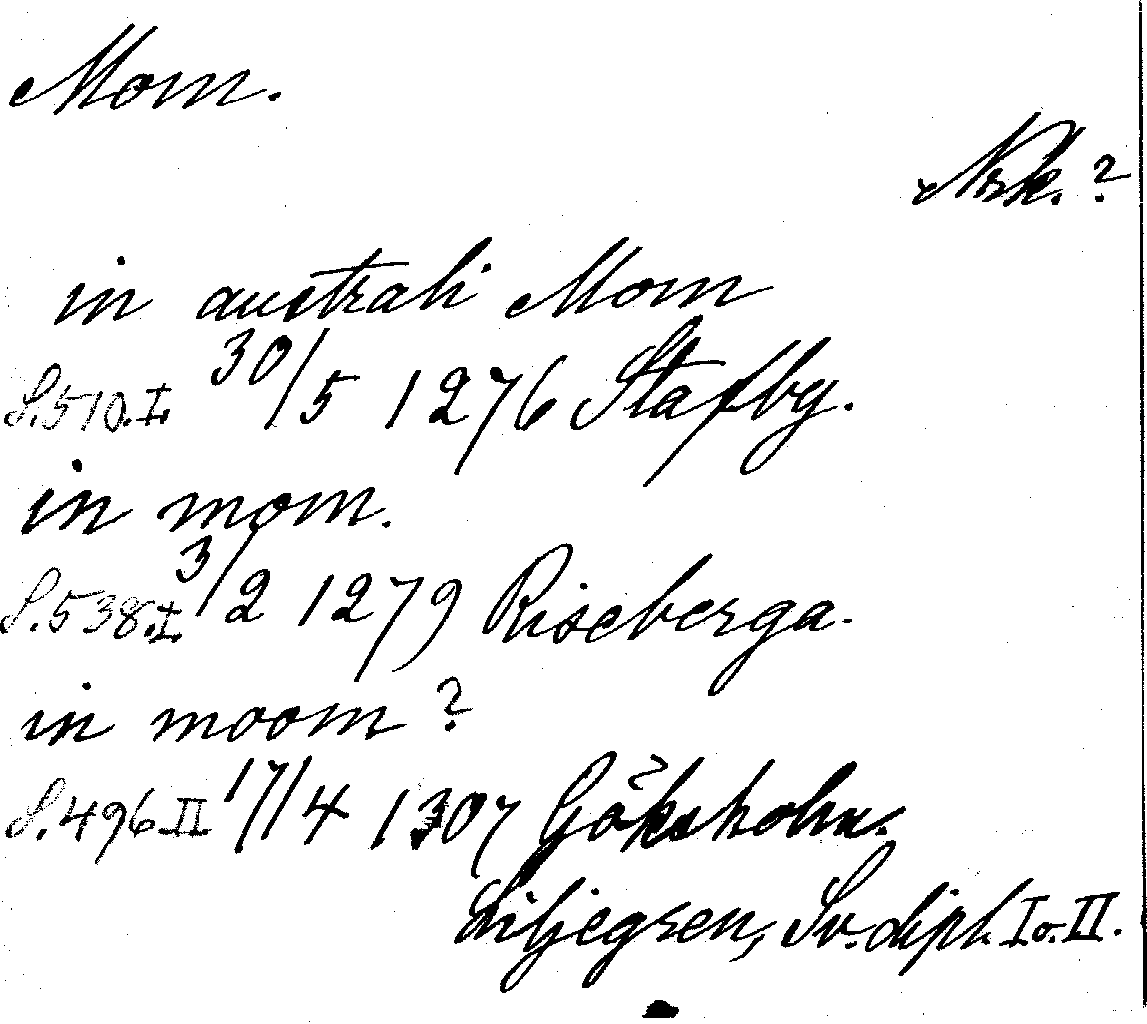 Mom.
Nrk.?
in australi Mom
S.510.I. 30/5 1276 Stafby.
in mom.
S.538.I. 3/2 1279 Riseberga.
in moom?
S.496.II 17/4 1307 Göksholm.
Liljegren, Sv. dipl. I o. II.